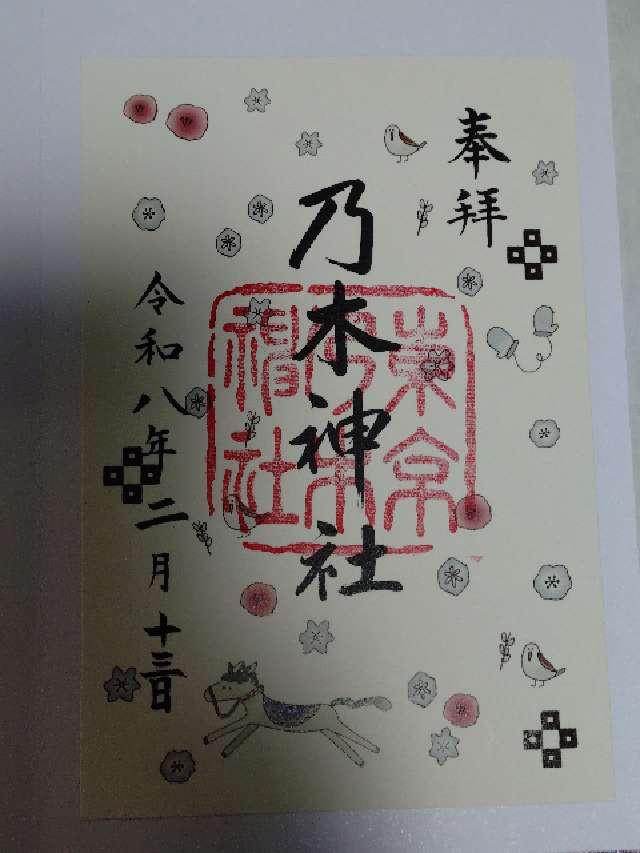 奉拝
乃木神社
東京乃木神社
令和八年二月十三日